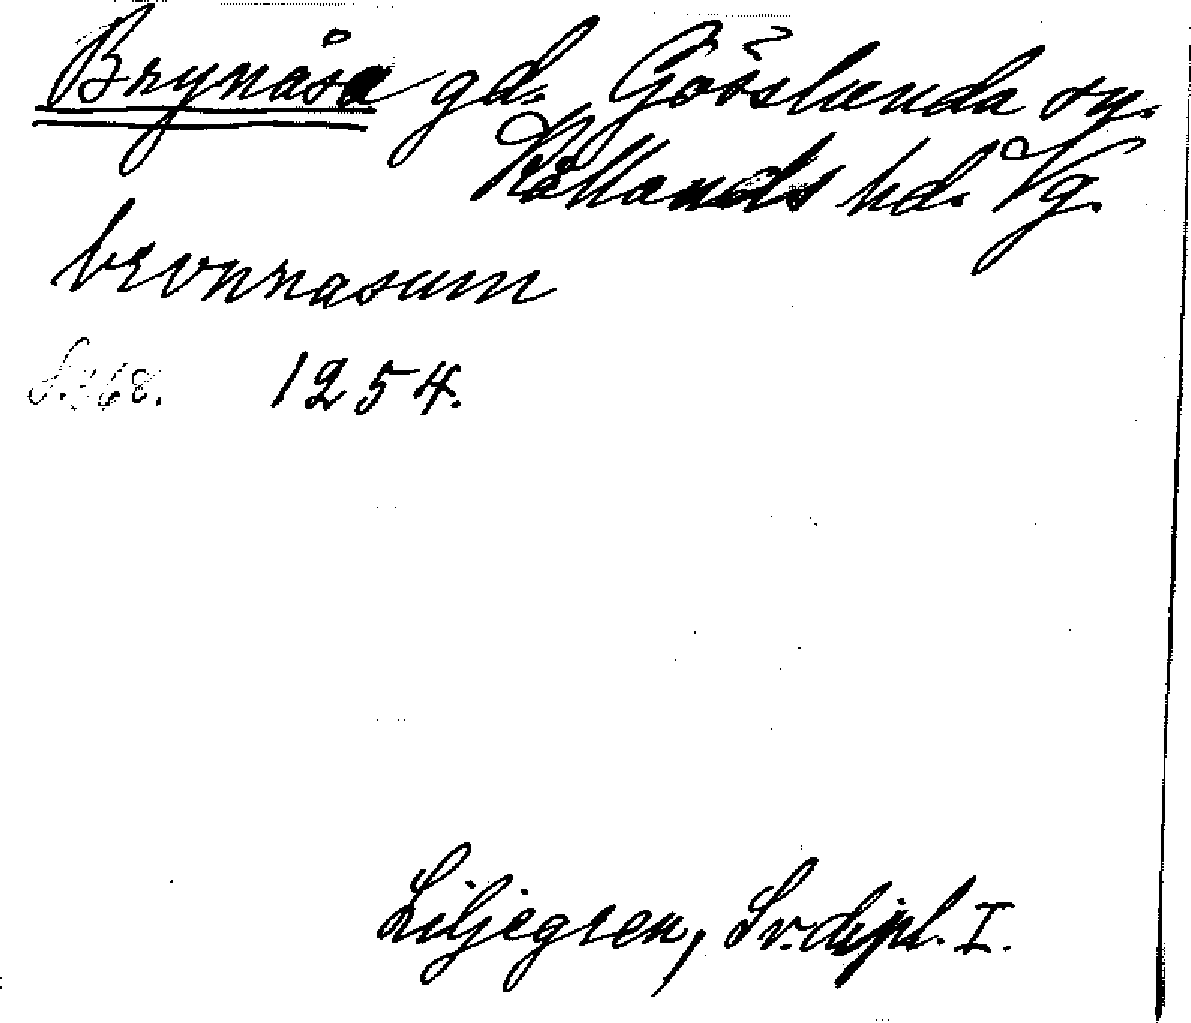 Brynåsa gd. Gösslunda sn.
Kållands hd. Vg.
bronnasum
S. 368. 1254.
Liljegren, Sv. dipl. I.